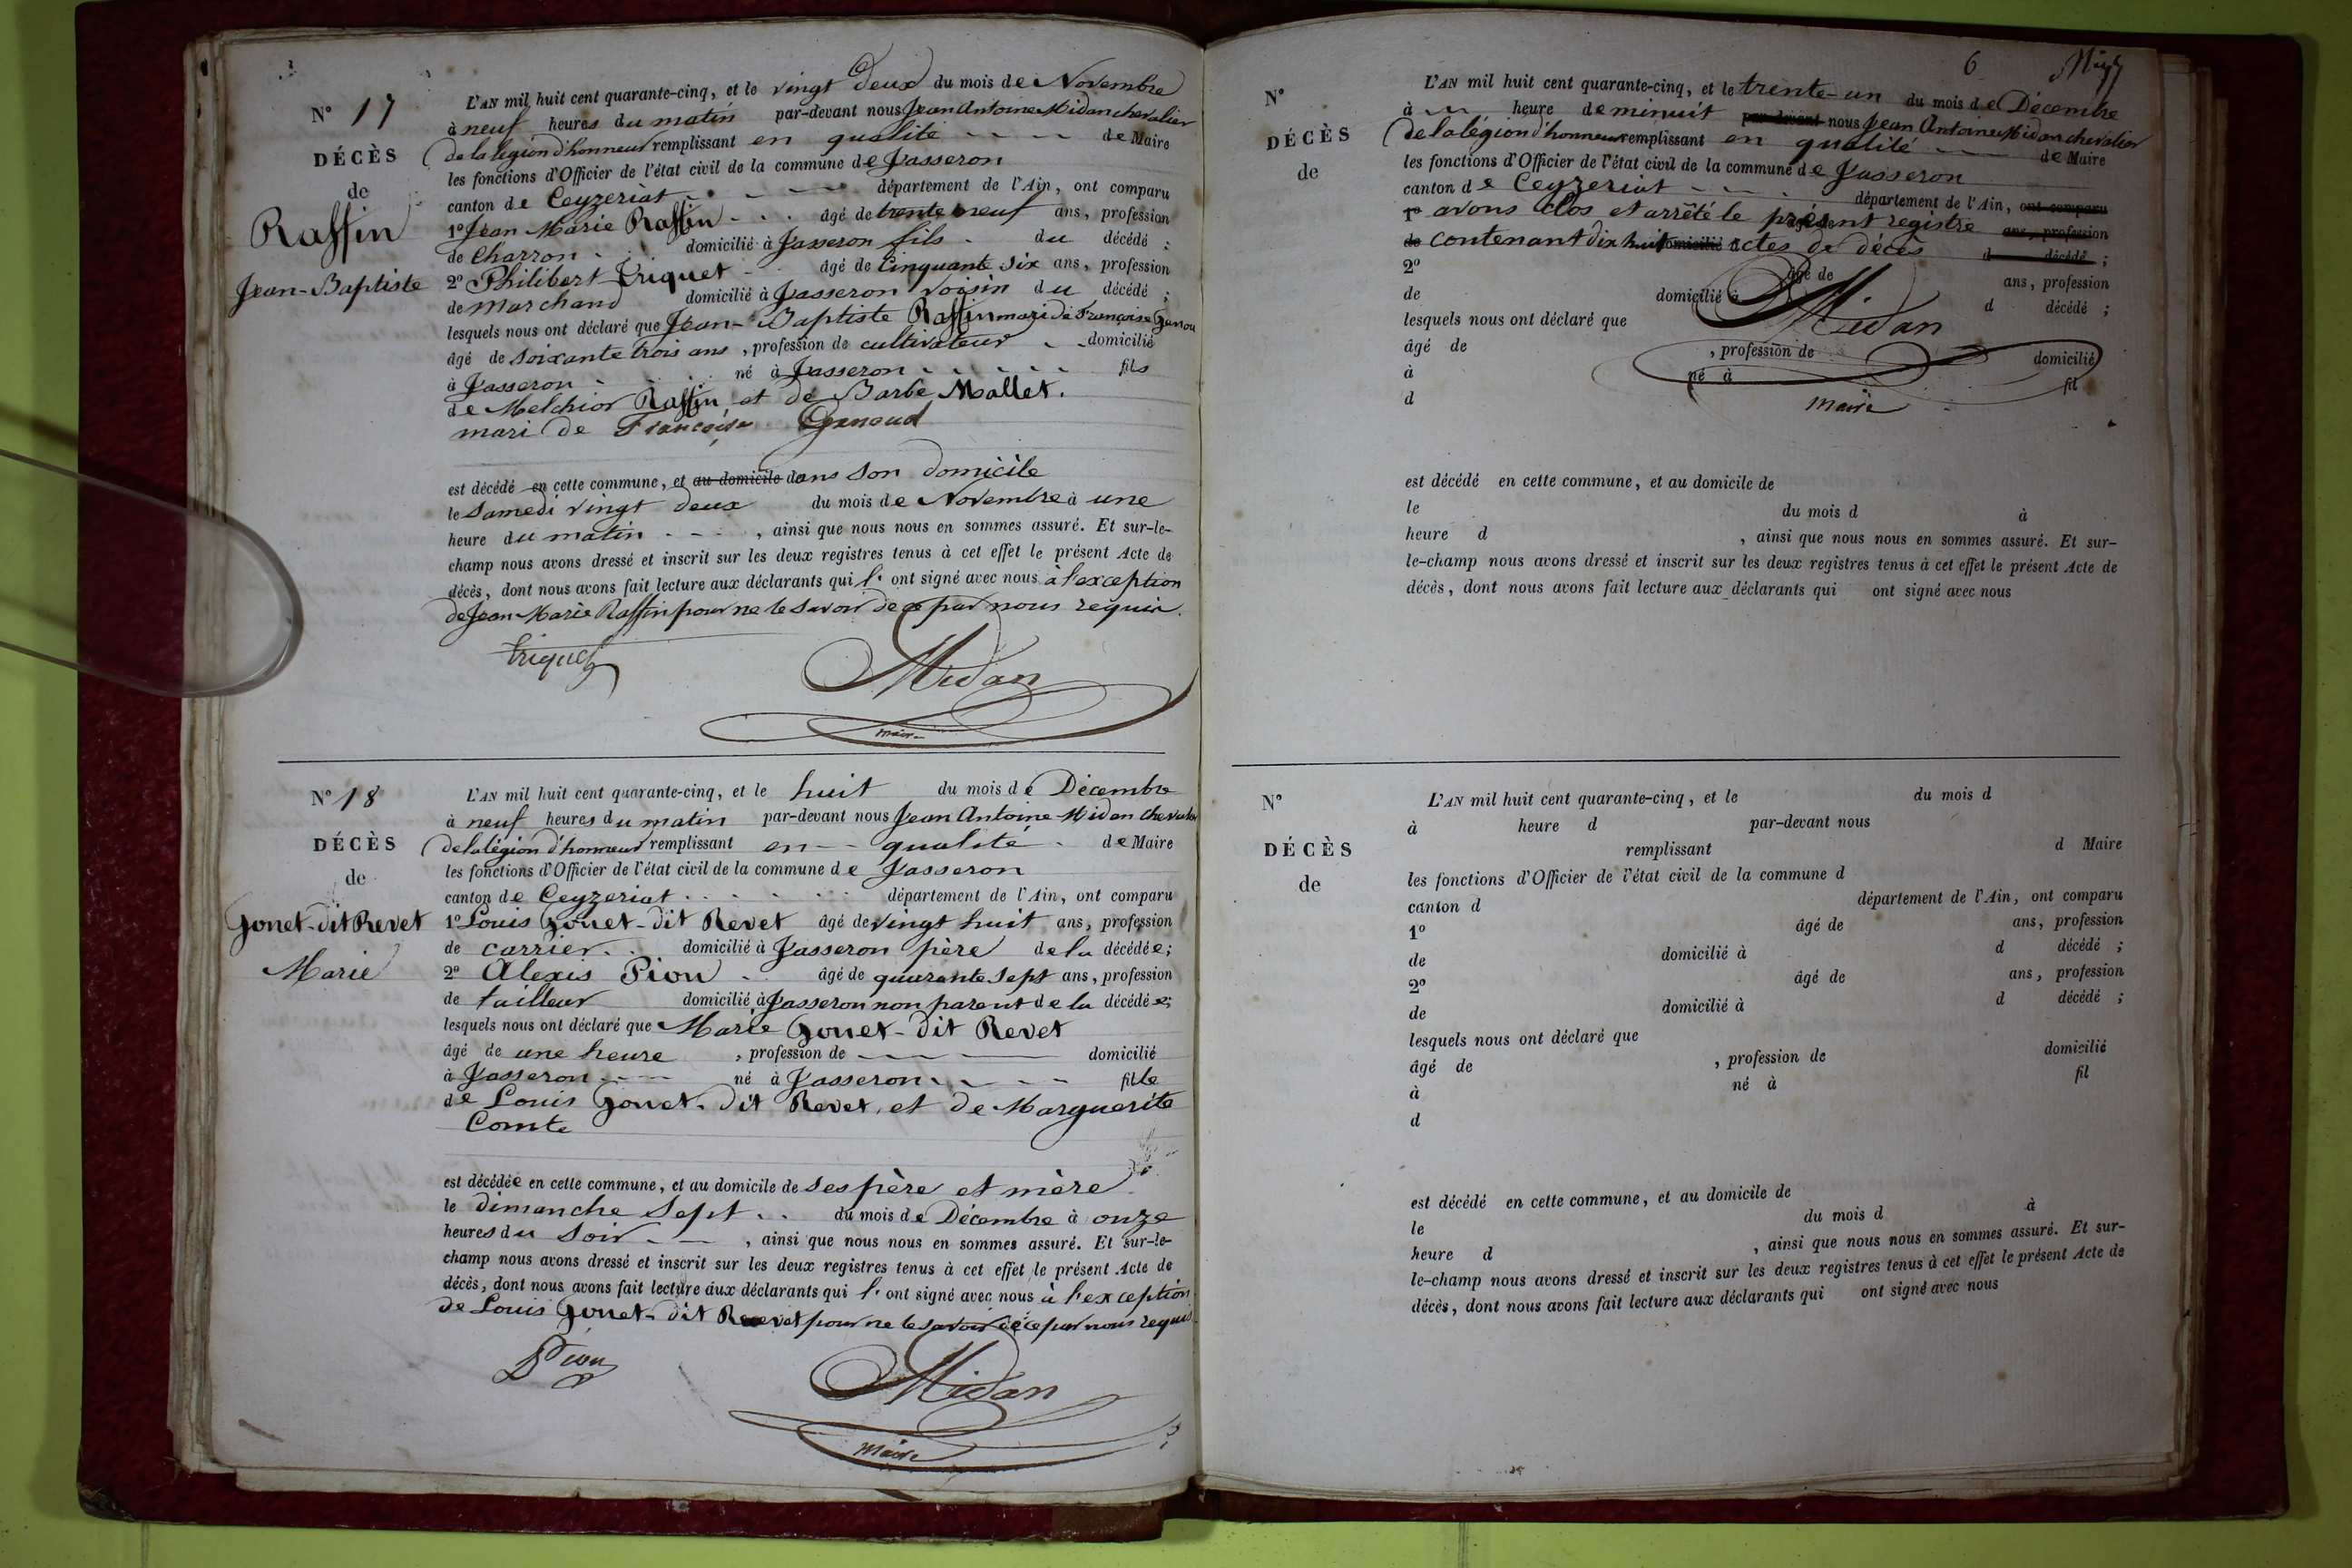 N° 17
DÉCÈS
de
Raffin
Jean-Baptiste
L'AN mil huit cent quarante-cinq, et le vingt Deux du mois de Novembre
à neuf heures du matin par-devant nous Jean Antoine Midan chevalier
de la légion d'honneur remplissant en qualité de Maire
les fonctions d'Officier de l'état civil de la commune de Jasseron
canton de Ceyzeriat département de l'Ain, ont comparu
1° Jean Marie Raffin âgé de trente neuf ans, profession
de Charron domicilié à Jasseron fils du décédé ;
2° Philibert Triquet âgé de Cinquante six ans, profession
de marchand domicilié à Jasseron voisin du décédé ;
lesquels nous ont déclaré que Jean-Baptiste Raffin mari de Françoise
âgé de soixante trois ans, profession de cultivateur domicilié
à Jasseron né à Jasseron fils
de Melchior Raffin, et de Barbe Mallet.
mari de Françoise
est décédé en cette commune, et au domicile dans son domicile
le samedi vingt deux du mois de Novembre à une
heure du matin , ainsi que nous nous en sommes assuré. Et sur-le-
champ nous avons dressé et inscrit sur les deux registres tenus à cet effet le présent Acte de
décès, dont nous avons fait lecture aux déclarants qui l' ont signé avec nous à l'exception
de Jean Marie Raffin pour ne le savoir de ce par nous requis.
Triquet
Midan
maire
N° 18
DÉCÈS
de
Gonet-dit Revet
Marie
L'AN mil huit cent quarante-cinq, et le huit du mois de Décembre
à neuf heures du matin par-devant nous Jean Antoine Midan chevalier
de la légion d'honneur remplissant en qualité de Maire
les fonctions d'Officier de l'état civil de la commune de Jasseron
canton de Ceyzeriat département de l'Ain, ont comparu
1° Louis Gonet-dit Revet âgé de vingt huit ans, profession
de carrier domicilié à Jasseron père de la décédée ;
2° Alexis Pion âgé de quarante sept ans, profession
de tailleur domicilié à Jasseron non parent de la décédée ;
lesquels nous ont déclaré que Marie Gonet-dit Revet
âgé de une heure , profession de domicilié
à Jasseron né à Jasseron fille
de Louis Gonet-dit Revet, et de Marguerite
Comte
est décédée en cette commune, et au domicile de ses père et mère
le dimanche sept du mois de Décembre à onze
heures du soir , ainsi que nous nous en sommes assuré. Et sur-le-
champ nous avons dressé et inscrit sur les deux registres tenus à cet effet le présent Acte de
décès, dont nous avons fait lecture aux déclarants qui l' ont signé avec nous à l'exception
de Louis Gonet-dit Revet pour ne le savoir de ce par nous requis
Pion
Midan
Maire
6
N°
DÉCÈS
de
L'AN mil huit cent quarante-cinq, et le trente-un du mois de Décembre
à heure de minuit par-devant nous Jean Antoine Midan chevalier
de la légion d'honneur remplissant en qualité de Maire
les fonctions d'Officier de l'état civil de la commune de Jasseron
canton de Ceyzeriat département de l'Ain, ont comparu
1° avons clos et arrêté le présent registre âgé de ans, profession
de contenant dix huit domicilié à actes de décès d décédé ;
2° âgé de ans, profession
de domicilié à d décédé ;
Midan
lesquels nous ont déclaré que
âgé de , profession de domicilié
à né à fil
d
maire
est décédé en cette commune, et au domicile de
le du mois d à
heure d , ainsi que nous nous en sommes assuré. Et sur-
le-champ nous avons dressé et inscrit sur les deux registres tenus à cet effet le présent Acte de
décès, dont nous avons fait lecture aux déclarants qui ont signé avec nous
N°
DÉCÈS
de
L'AN mil huit cent quarante-cinq, et le du mois d
à heure d par-devant nous
remplissant d Maire
les fonctions d'Officier de l'état civil de la commune d
canton d département de l'Ain, ont comparu
1° âgé de ans, profession
de domicilié à d décédé ;
2° âgé de ans, profession
de domicilié à d décédé ;
lesquels nous ont déclaré que
âgé de , profession de domicilié
à né à fil
d
est décédé en cette commune, et au domicile de
le du mois d à
heure d , ainsi que nous nous en sommes assuré. Et sur-
le-champ nous avons dressé et inscrit sur les deux registres tenus à cet effet le présent Acte de
décès, dont nous avons fait lecture aux déclarants qui ont signé avec nous